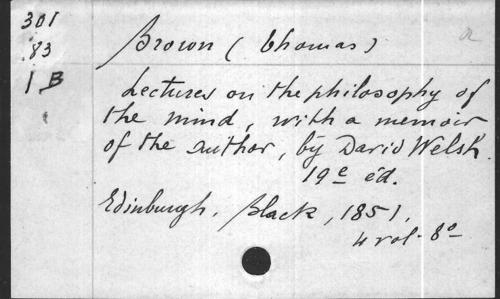 301
.83
1 B
Brown (Thomas)
a
Lectures on the philosophy of
the mind, with a memoir
of the author, by David Welsh.
19e éd.
Edinburgh. Black, 1851.
4 vol. 8o